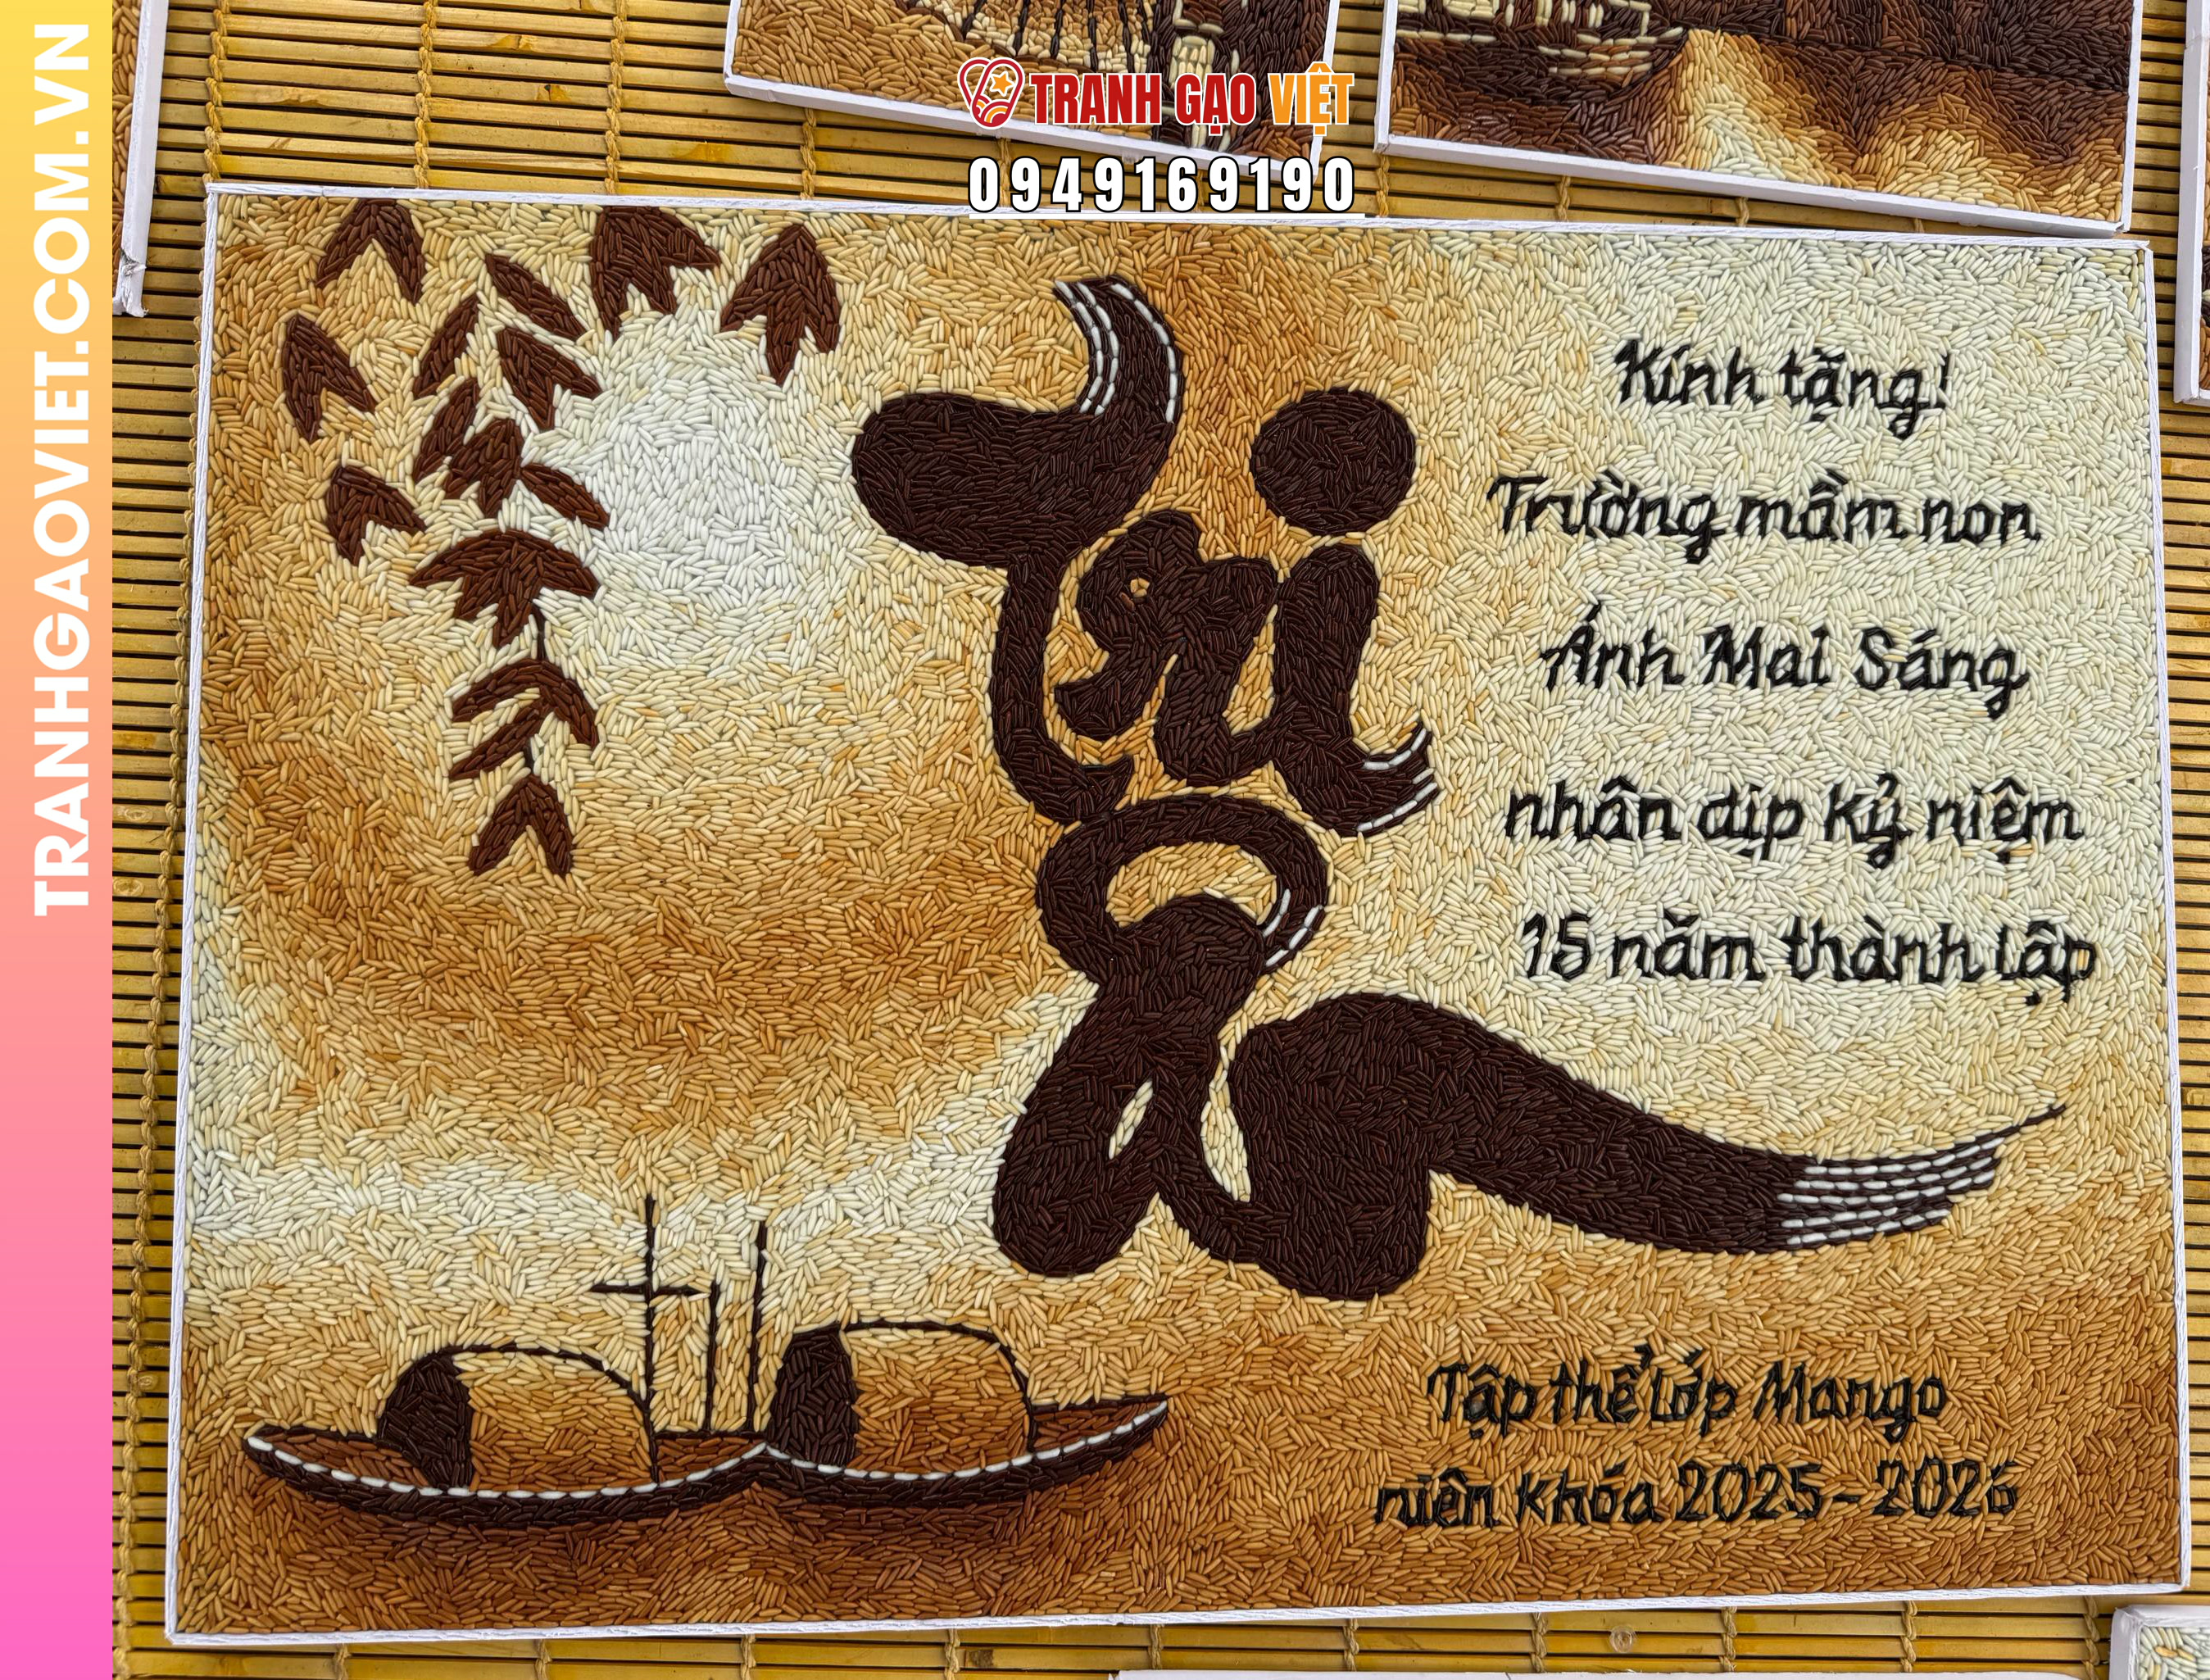 TRANH GẠO VIỆT
0949169190
TRANHGAOVIET.COM.VN
Tri Ân
Kính tặng!
Trường mầm non
Ánh Mai Sáng
nhân dịp kỷ niệm
15 năm thành lập
Tập thể lớp Mango
niên khóa 2025-2026